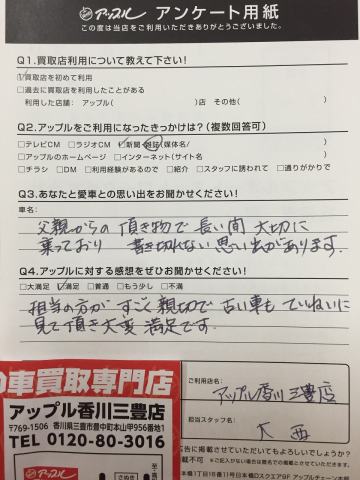 アップル アンケート用紙
この度は当店をご利用いただきありがとうございました。
Q1.買取店利用について教えて下さい!
☑買取店を初めて利用
□過去に買取店を利用したことがある
利用した店舗: アップル( )店 その他( )
Q2.アップルをご利用になったきっかけは?(複数回答可)
□テレビCM □ラジオCM ☑新聞・雑誌(媒体名/ )
□アップルのホームページ □インターネット(サイト名 )
□チラシ □DM □利用経験があるので □紹介 □スタッフに誘われて □通りがかりで
Q3.あなたと愛車との思い出をお聞かせください!
車名:
父親からの頂き物で長い間大切に
乗っており 書き切れない思い出があります.
Q4.アップルに対する感想をぜひお聞かせください!
□大満足 ☑満足 □普通 □もう少し □不満
担当の方がすごく親切で古い車もていねいに
見て頂き大変満足です.
ご利用店名:
アップル香川三豊店
担当スタッフ名:
大西
の車買取専門店
アップル香川三豊店
〒769-1506 香川県三豊市豊中町本山甲956番地1
TEL 0120-80-3016
広告に掲載させていただいてもよろしいでしょうか?
掲載不可 ※ご記入がない場合は匿名での掲載とさせていただきます。
アップル